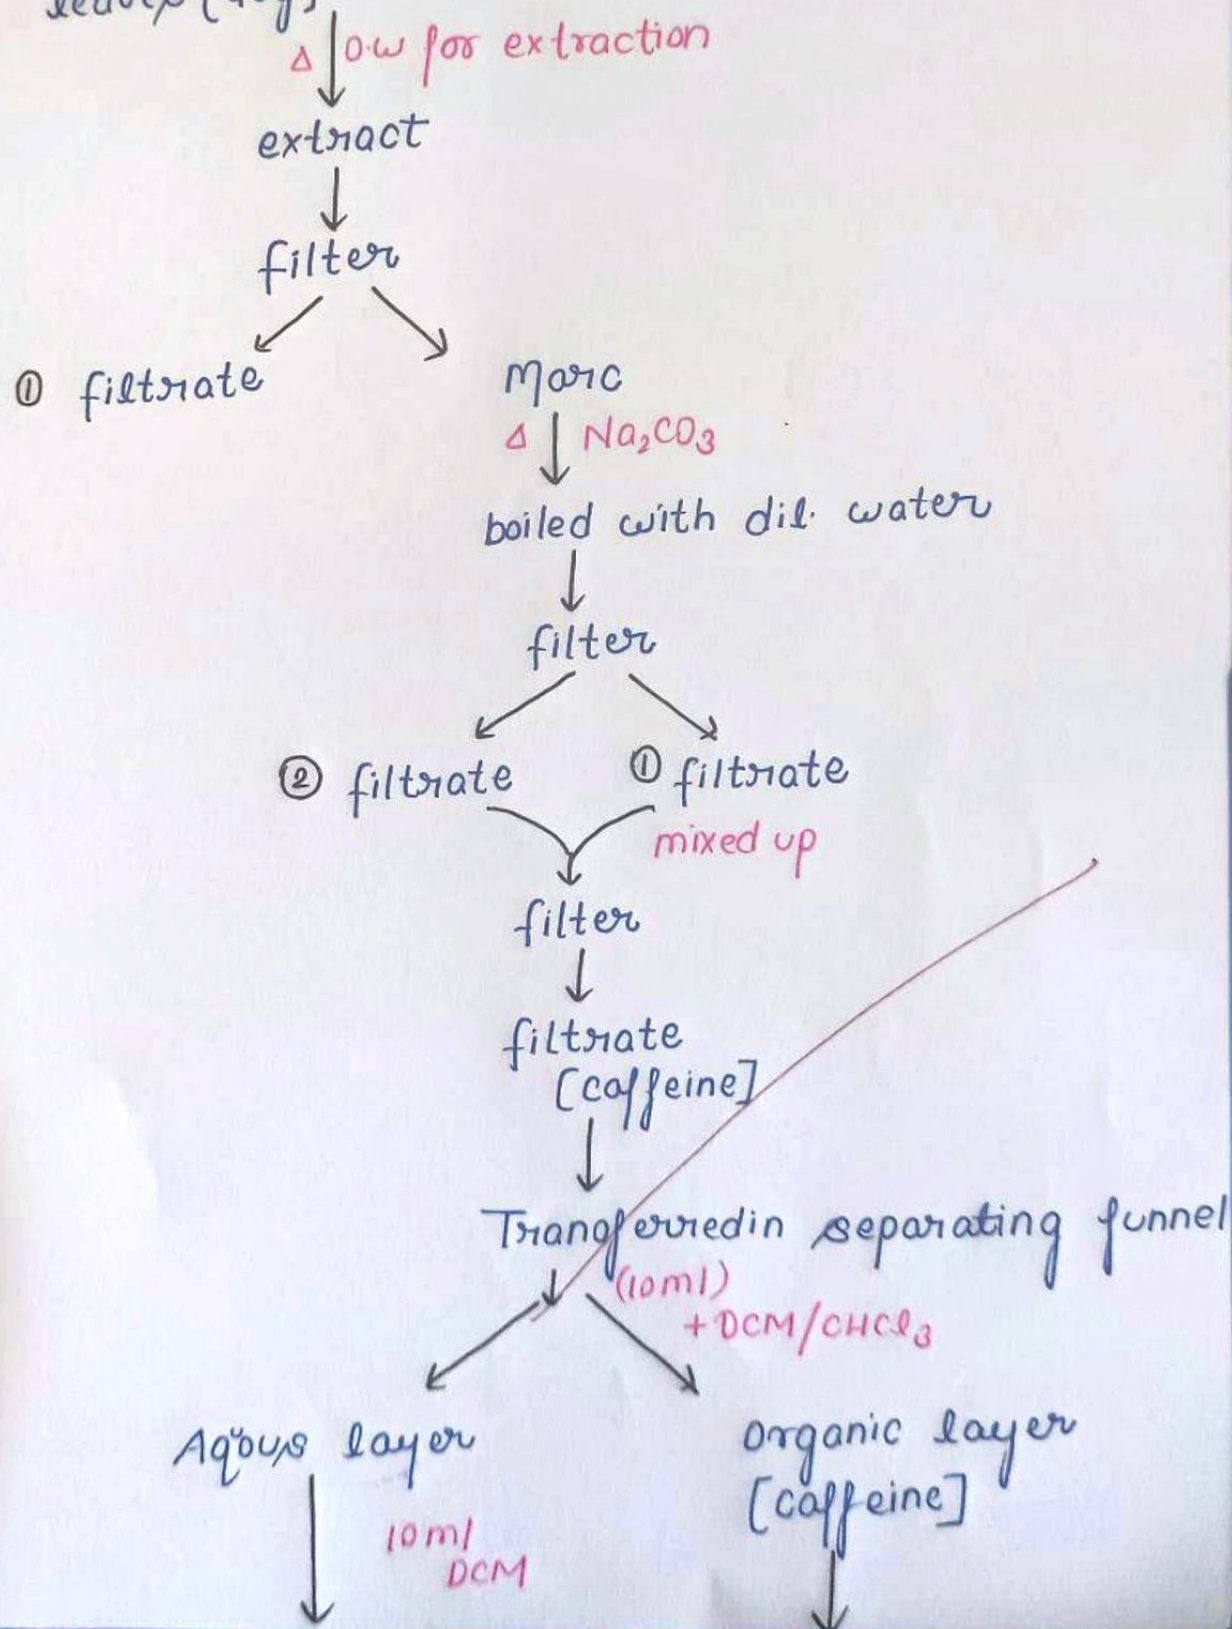 Δ D.W for extraction
extract
filter
① filtrate
Marc
Δ Na₂CO₃
boiled with dil. water
filter
② filtrate ① filtrate
mixed up
filter
filtrate
[caffeine]
Transferredin separating funnel
(10ml)
+DCM/CHCl₃
Aq̈ous layer
organic layer
[caffeine]
10ml
DCM